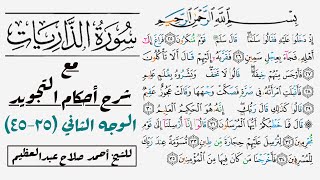 بِسْمِ اللَّهِ الرَّحْمَٰنِ الرَّحِيمِ
سُورَةُ الذَّارِيَاتِ
مع
شرح أحكام التجويد
الوجه الثاني (٢٥-٤٥)
للشيخ أحمد صلاح عبدالعظيم
إِذْ دَخَلُوا عَلَيْهِ فَقَالُوا سَلَامًا قَالَ سَلَامٌ قَوْمٌ مُنْكَرُونَ ٢٥ فَرَاغَ إِلَىٰ
أَهْلِهِ فَجَاءَ بِعِجْلٍ سَمِينٍ ٢٦ فَقَرَّبَهُ إِلَيْهِمْ قَالَ أَلَا تَأْكُلُونَ
٢٧ فَأَوْجَسَ مِنْهُمْ خِيفَةً قَالُوا لَا تَخَفْ وَبَشَّرُوهُ بِغُلَامٍ عَلِيمٍ
٢٨ فَأَقْبَلَتِ امْرَأَتُهُ فِي صَرَّةٍ فَصَكَّتْ وَجْهَهَا وَقَالَتْ عَجُوزٌ عَقِيمٌ
٢٩ قَالُوا كَذَٰلِكِ قَالَ رَبُّكِ إِنَّهُ هُوَ الْحَكِيمُ الْعَلِيمُ ٣٠
قَالَ فَمَا خَطْبُكُمْ أَيُّهَا الْمُرْسَلُونَ ٣١ قَالُوا إِنَّا أُرْسِلْنَا إِلَىٰ قَوْمٍ
مُجْرِمِينَ ٣٢ لِنُرْسِلَ عَلَيْهِمْ حِجَارَةً مِنْ طِينٍ ٣٣ مُسَوَّمَةً عِنْدَ رَبِّكَ
لِلْمُسْرِفِينَ ٣٤ فَأَخْرَجْنَا مَنْ كَانَ فِيهَا مِنَ الْمُؤْمِنِينَ ٣٥